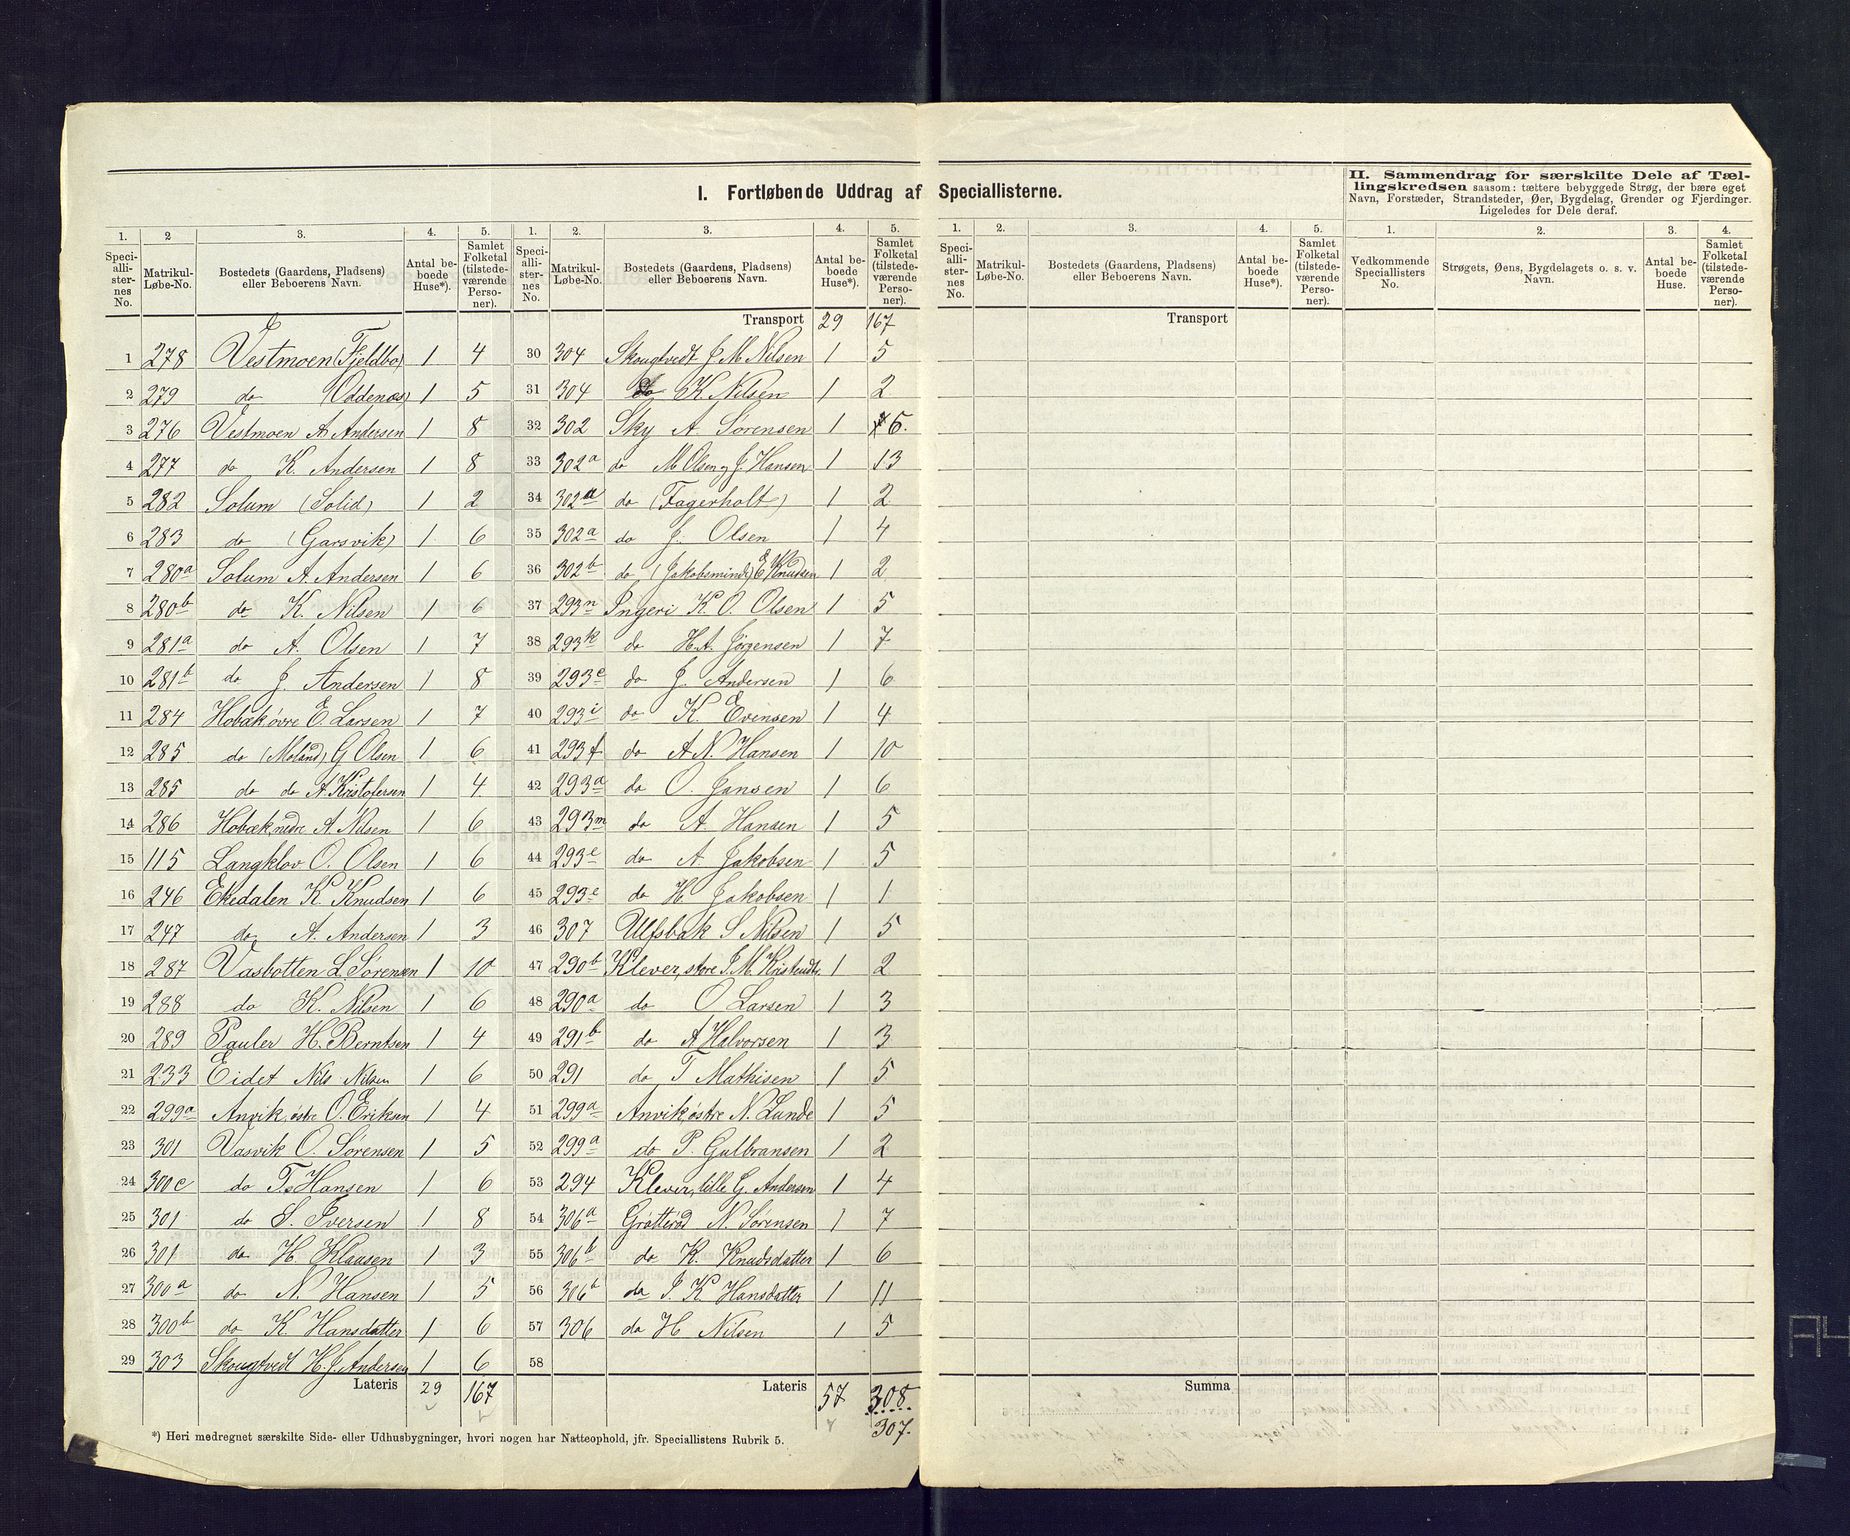 I. Fortløbende Uddrag af Speciallisterne.
II. Sammendrag for særskilte Dele af Tæl-
lingskredsen saasom: tættere bebyggede Strøg, der bære eget
Navn, Forstæder, Strandsteder, Øer, Bygdelag, Grender og Fjerdinger.
Ligeledes for Dele deraf.
1. 2 3. 4. 5.
Speciallisternes No. Matrikul-Løbe-No. Bostedets (Gaardens, Pladsens) eller Beboerens Navn. Antal beboede Huse*). Samlet Folketal (tilstedeværende Personer).
1 278 Vestmoen (Fjeldbo) 1 4
2 279 do (Oddenæs) 1 5
3 276 Vestmoen A Andersen 1 8
4 277 do K. Andersen 1 8
5 282 Solum (Solid) 1 2
6 283 do (Garsvik) 1 6
7 280a Solum A. Andersen 1 6
8 280b do K. Nilsen 1 6
9 281a do A. Olsen 1 7
10 281b do J. Andersen 1 8
11 284 Hobæk øvre E Larsen 1 7
12 285 do (Moland) G Olsen 1 6
13 285 do do A. Kristofersen 1 4
14 286 Hobæk, nedre A. Nilsen 1 6
15 115 Langklov O. Olsen 1 6
16 246 Ekedalen K Knudsen 1 6
17 247 do A. Andersen 1 3
18 287 Vasbotten L. Sørensen 1 10
19 288 do K. Nilsen 1 6
20 289 Pauler H. Berntsen 1 4
21 233 Eidet Nils Nilsen 1 6
22 299a Anvik, østre O. Eriksen 1 4
23 301 Vasvik O. Sørensen 1 5
24 300c do T. Hansen 1 6
25 301 do S. Iversen 1 8
26 301 do H. Klausen 1 3
27 300a do N. Hansen 1 5
28 300b do K. Hansdatter 1 6
29 303 Skougtvedt H. J. Andersen 1 6
Lateris 29 167
1. 2. 3. 4. 5.
Speciallisternes No. Matrikul-Løbe-No. Bostedets (Gaardens, Pladsens) eller Beboerens Navn. Antal beboede Huse*). Samlet Folketal (tilstedeværende Personer).
Transport 29 167
30 304 Skougtvedt J. M. Nilsen 1 5
31 304 do K Nilsen 1 2
32 302 Sky A Sørensen 1 6.
33 302a do M Olsen og J. Hansen 1 13
34 302a do (Fagerholt) 1 2
35 302a do J. Olsen 1 4
36 302b do (Jakobsminde) E Knudsen 1 2
37 293n Ingeri K. O. Olsen 1 5
38 293k do H. A. Jørgensen 1 7
39 293c do J. Andersen 1 6
40 293i do K. Evensen 1 4
41 293f do A N. Hansen 1 10
42 293a do O. Jansen 1 6
43 293m do A. Hansen 1 5
44 293e do A. Jakobsen 1 5
45 293e do H. Jakobsen 1 1
46 307 Ulfsbak S Nilsen 1 5
47 290b Klever, store J. M. 1 2
48 290a do O Larsen 1 3
49 291b do A Halvorsen 1 3
50 291 do T Mathisen 1 5
51 299a Anvik østre N. Lunde 1 5
52 299a do P. Gulbransen 1 2
53 294 Klever, lille G. Andersen 1 4
54 306a Grøtterød N. Sørensen 1 7
55 306b do K. Knudsdatter 1 6
56 306b do I. K. Hansdatter 1 11
57 306 do H. Nilsen 1 5
58
Lateris 57 308
307.
1. 2. 3. 4. 5.
Speciallisternes No. Matrikul-Løbe-No. Bostedets (Gaardens, Pladsens) eller Beboerens Navn. Antal beboede Huse*). Samlet Folketal (tilstedeværende Personer).
Transport
Summa
1. 2. 3. 4.
Vedkommende Speciallisters No. Strøgets, Øens, Bygdelagets o. s. v. Navn. Antal beboede Huse. Samlet Folketal (tilstedeværende Personer).
*) Heri medregnet særskilte Side- eller Udhusbygninger, hvori nogen har Natteophold, jfr. Speciallistens Rubrik 5.
A4